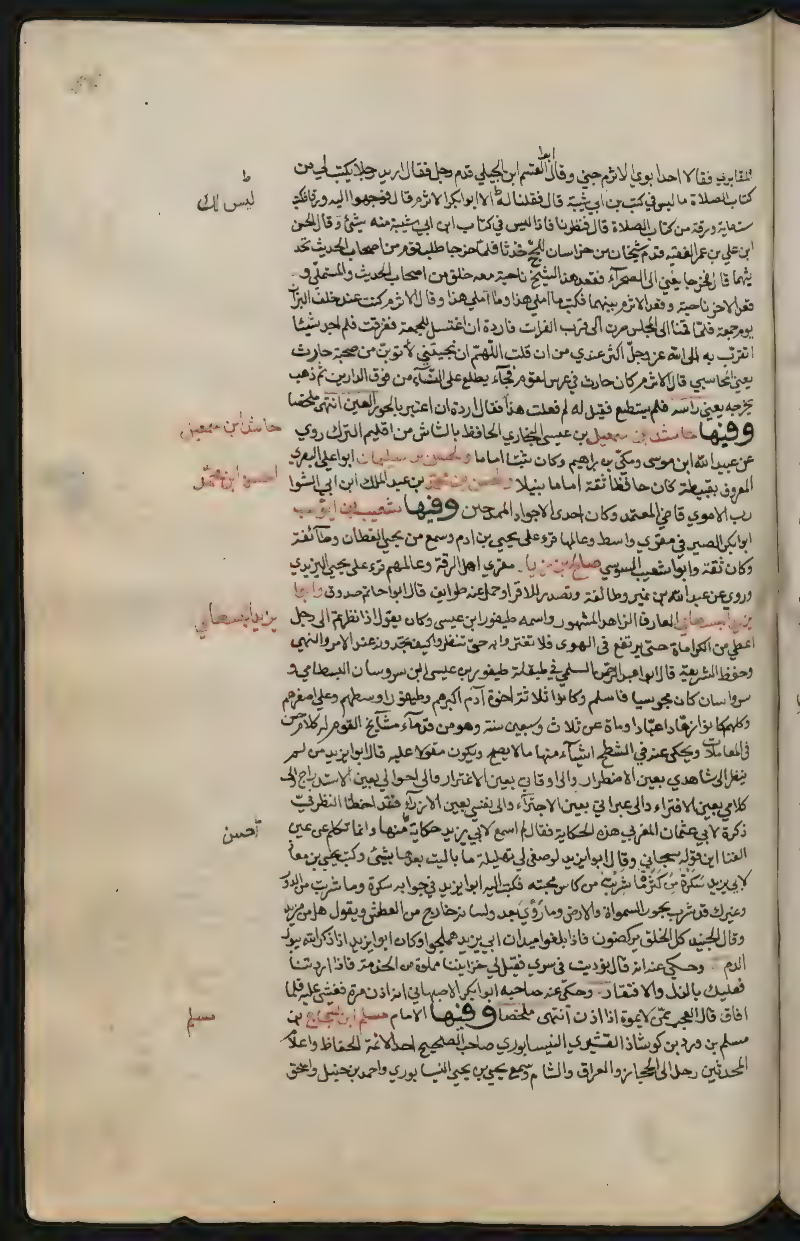 المقابري فقالا احدا بوي لاثرم جني وقال ابو القسم ابن الجيلي قدم رجل فقال اريد رجلا يكتب لي من
كتاب الصلاة ما ليس في كتب بن ابي شيبة قال فقلنا له الا ابوا بكر الاثرم قال فوجهوا اليه ورقا فكتب
ستماية ورقة من كتاب الصلاة قال فنظرنا فاذا ليس في كتاب ابن ابي شيبة منه شيئ وقال الحسن
ابن علي بن عمر الفقيه قدم شيخان من خراسان للحج فحدثا فلما خرجا طلب قوم من اصحاب الحديث تحد
يثهما قال فخرجا يعني الى الصحرآء فقعد هذا الشيخ ناحية معه خلق من اصحاب الحديث والمستملي و
قعد الاخر ناحية وقعد الاثرم بينهما فكتب ما املى هذا وما املى هذا وقال الاثرم كنت عند خلف البزار
يوم جمعة فلما قمنا الى المجلس صرت الى قرب الفرات فاردة ان اغتسل للجمعة فغرقت فلم اجد شيئا
اتقرب به الى الله عز وجل اكثر عندي من ان قلت اللهم ان نجيتني لاتوبن من صحبة حارث
يعني المحاسبي قال الاثرم كان حارث في عرس لقوم فجاء يطلع على النسآء من فوق الدار بن ثم ذهب
يخرجه يعني راسه فلم يستطع فقيل له لم فعلت هذا فقال اردة ان اعتبر بالحور العين انتهى ملخصا
وفيها حاشد بن سمعيل بن عيسى البخاري الحافظ بالشاش من اقليم الترك روي
عن عبيد الله ابن موسى ومكي بن براهيم وكان ثبتا اماما والحسن بن سليمان ابوا علي البصري
المعروف بقبيطة كان حافظا ثقة اماما نبيلا والحسن بن محمد بن عبد الملك ابن ابي الشوا
رب الاموي قاضي المعتمد وكان احدى الاجواد الممدحين وفيها شعيب بن ايوب
ابوا بكر الصيرفي مقري واسط وعالمها قرء على يحيى بن ادم وسمع من يحيى القطان وطائفة
وكان ثقة وابوا شعيب السوسي صالح بن زياد مقري اهل الرقة وعالمهم قرء على يحيى اليزيدي
وروي عن عبد الله بن نمير وطائفة وتصدر للاقراء وحمل عنه طوايف قال ابوا حاتم صدوق وابوا
يزيد البسطامي العارف الزاهد المشهور واسمه طيفور ابن عيسى وكان يقول اذا نظرتم الى رجل
اعطي من الكراماة حتى يرتفع في الهوى فلا تغتروا به حتى تنظروا كيف تجدونه عند الامر والنهي
وحفظ الشريعة قال ابوا عبد الرحمن السلمي في طبقاته طيفور بن عيسى ابن سروسان البسطامي و
سروسان كان مجوسيا فاسلم وكانوا ثلاثة اخوة آدم اكبرهم وطيفور اوسطهم وعلي اصغرهم
وكلهم كانوا زهادا عبادا وماة عن ثلاث وسبعين سنة وهو من قدمآء مشآئخ القوم له كلام حسن
في المعاملات ويحكى عنه في الشطح اشيآء منها ما لا يصح ويكون مقولا عليه قال ابوا يزيد من لم
ينظر الى شاهدي بعين الاضطرار والى اوقاتي بعين الاغترار والى احوالي بعين الاستدراج والى
كلامي بعين الافتراء والى عبراتي بعين الاجترآء والى نفسي بعين الازرآء فقد اخطا النظر في
ذكرة لابي عثمان المغربي هذه الحكاية فقال لم اسمع لابي يزيد حكاية منها وانما تكلم عن عين
الفنا اين قوله سبحاني وقال ابوا يزيد لو صفى لي تهليلة ما باليت بعدها بشئ وكتب يحيى بن معاذ
لابي يزيد سكرة من كثرة ما شربت من كاس محبته فكتب اليه ابوا يزيد في جوابه سكرة وما شربت من الدرر
وغيرك قد شرب بحور السمواة والارض وما روي بعد ولسانه خارج من العطش ويقول هل من مزيد
وقال الجنيد كل الخلق يركضون فاذا بلغوا ميدان ابي يزيد هملجوا وكان ابوا يزيد اذا ذكر الله يبول
الدم وحكى عنه انه قال نوديت في سري فقيل لي خزايننا مملوة من الخدمة فاذا اردتنا
فعليك بالذل والافتقار وحكى عنه صاحبه ابوا بكر الاصبهاني انه اذن مرة فغشي عليه فلما
افاق قال العجب ممن لا يموة اذا اذن انتهى ملخصا وفيها الامام مسلم ابن الحجاج بن
مسلم بن ورد بن كوشاذ القشيري النيسابوري صاحب الصحيح احد الائمة الحفاظ واعلام
المحدثين رحل الى الحجاز والعراق والشام وسمع يحيى بن يحيى النيسابوري واحمد بن حنبل واسحق
ط
ليس لك
حاشد ابن سمعيل
الحسن ابن محمد
يزيد البسطامي
احسن
مسلم